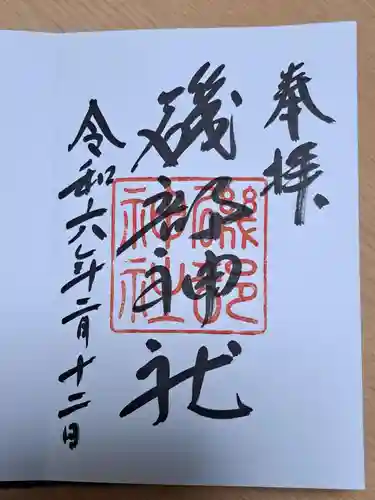 奉拝
磯部神社
磯部神社
令和六年二月十二日